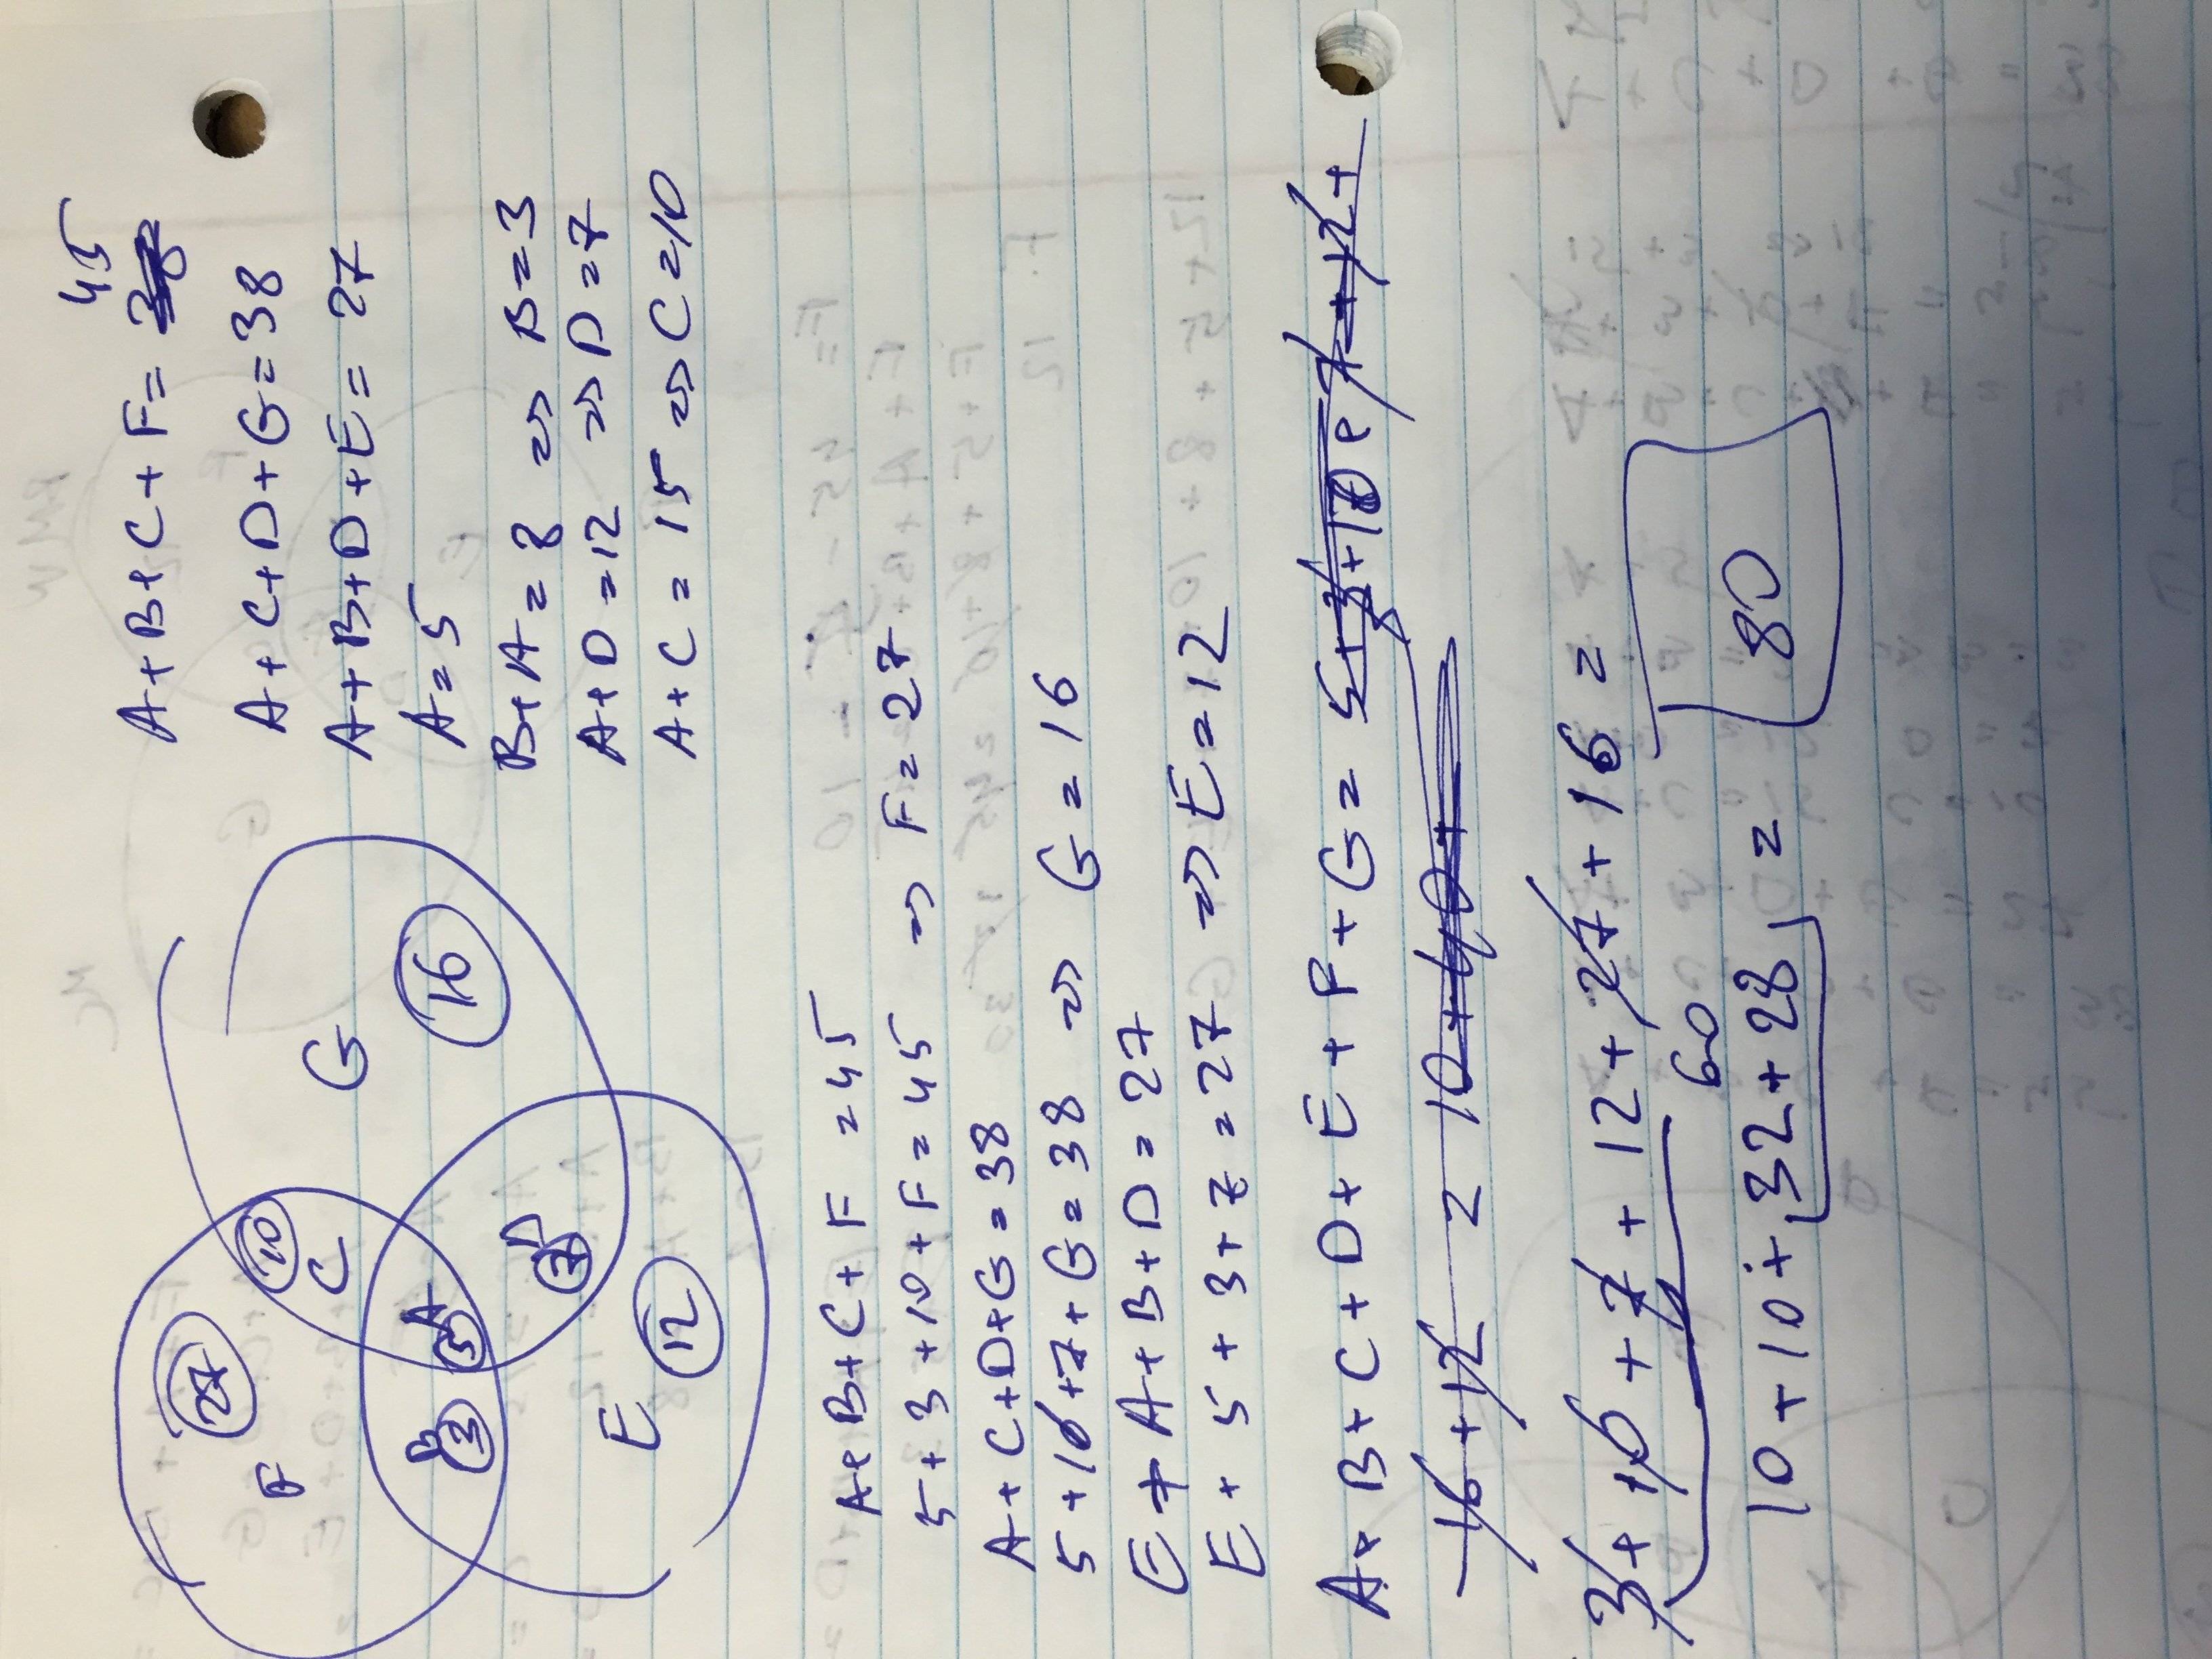 A+B+C+F= 45
A+C+D+G=38
A+B+D+E= 27
A=5
B+A=8 => B=3
A+D=12 => D=7
A+C = 15 => C=10
F 27
10
C
G
16
B 3
5 A
7 D
E 12
A+B+C+F =45
5+3+10+F=45 => F=27
A+C+D+G=38
5+10+7+G=38 => G=16
E+A+B+D=27
E+5+3+7=27 => E=12
A+B+C+D+E+F+G= 5+3+10+7+12+
16+12 = 10+40+
3+10+7+12+27+16 =
60
10+10+32+28 = 80